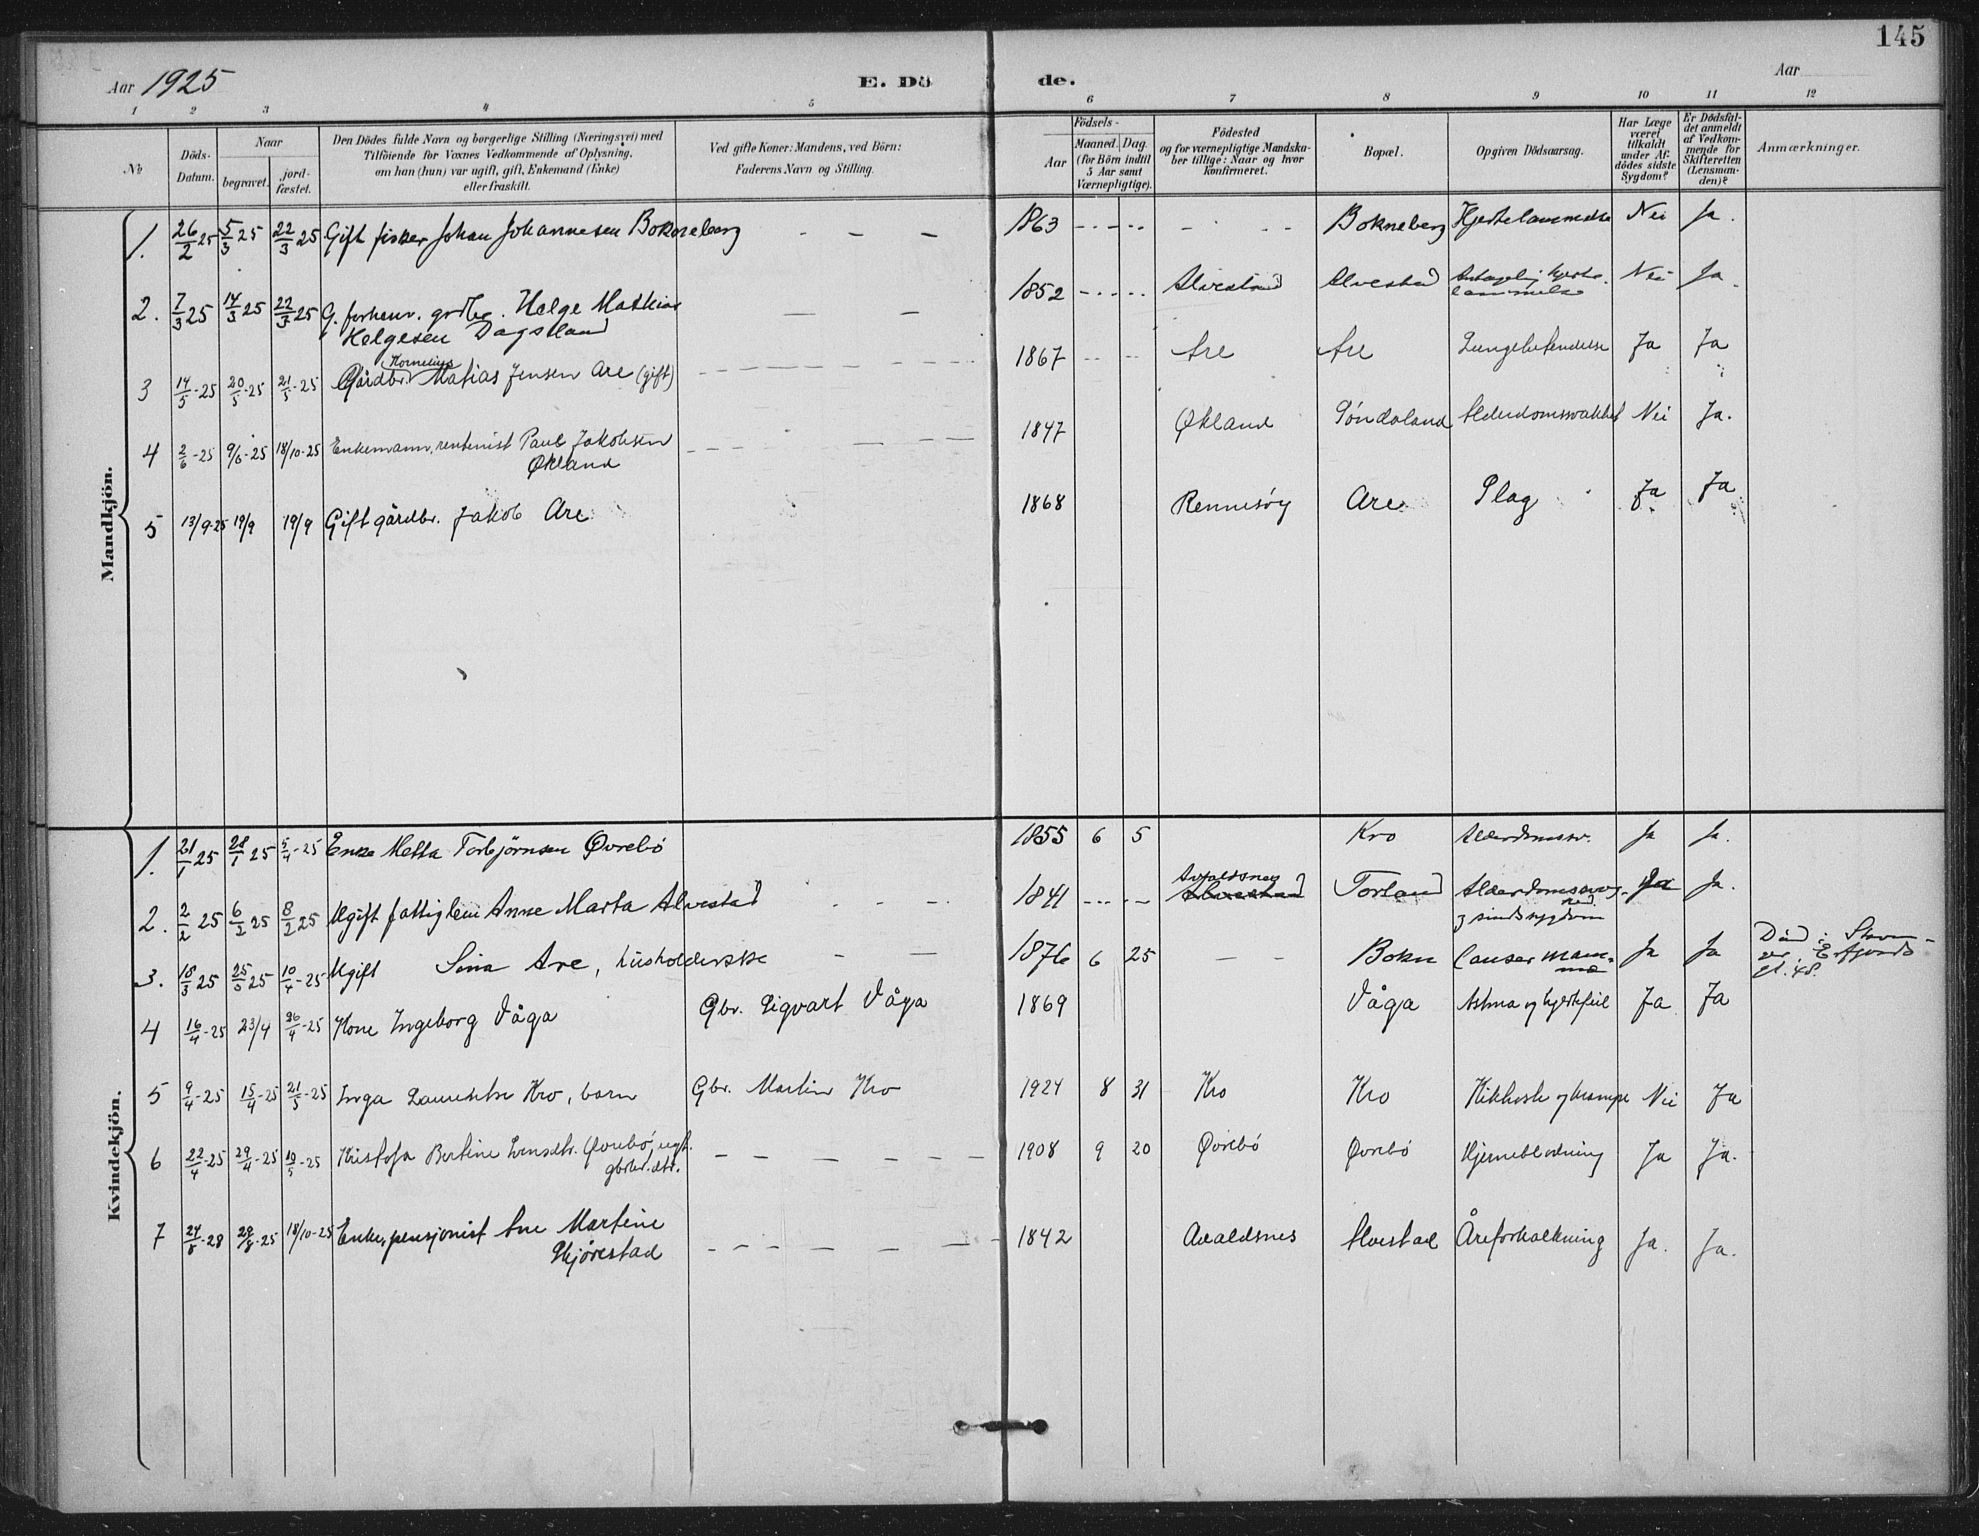 145
Aar 1925
E. Dö
de.
Aar
1 2 3 4 5 6 7 8 9 10 11 12
No
Döds-
Datum.
Naar
begravet.
jord-
fæstet.
Den Dödes fulde Navn og borgerlige Stilling (Næringsvei) med
Tilföiende for Voxnes Vedkommende af Oplysning,
om han (hun) var ugift, gift, Enkemand (Enke)
eller fraskilt.
Ved gifte Koner: Mandens, ved Börn:
Faderens Navn og Stilling.
Födsels-
Aar
Maaned. Dag.
(for Börn indtil
5 Aar samt
Værnepligtige).
Födested
og for værnepligtige Mandska-
ber tillige: Naar og hvor
konfirmeret.
Bopæl.
Opgiven Dödsaarsag.
Har Læge
været
tilkaldt
under Af-
dödes sidste
Sygdom?
Er Dödsfal-
det anmeldt
af Vedkom-
mende for
Skifteretten
(Lensman-
den)?
Anmærkninger.
Mandkjön.
1. 26/2 25 5/3 25 22/3 25 Gift fisker Johan Johannesen Bokneberg - - - 1863 - - Bokneberg Hjertelammelse Nei Ja.
2. 7/3 25 14/3 25 22/3 25 G. forhenv. grdbr. Helge Mathias
Helgesen Dagsland - - 1852 Alvestad Alvestad Antagelig hjerte-
lammelse Nei Ja.
3 14/5-25 20/5-25 21/5-25 Gårdbr. Kornelius Matias Jensen Are (gift) 1867 Are Are Lungebetendelse Ja Ja
4 2/6-25 9/6-25 18/10-25 Enkemann, rentenist Paul Jakobsen
Økland 1847 Økland Søndaland Alderdomssvakhet Nei Ja.
5 13/9-25 19/9 19/9 Gift gårdbr. Jakob Are 1868 Rennesøy Are Slag Ja Ja
Kvindekjön.
1. 21/1 25 28/1 25 5/4-25 Enke Metta Torbjørnsen Øvrebö 1855 6 5 Kro Alderdomssv. Ja Ja.
2. 2/2 25 6/2 25 8/2 25 Ugift fattiglem Anne Marta Alvestad - - 1841 Avaldsnes Alvestad Torland Ja Ja.
sindssygdom
3. 18/3 25 25/25 10/4-25 Ugift Sina Are, husholderske - - 1876 6 25 - - Bokn Cancer mam-
mæ Ja Ja Död i
4 16/4-25 23/4 26/4-25 Kone Ingeborg Våga Gbr. Sigvart Våga 1869 Våga Astma og hjertefeil Ja Ja
5 9/4-25 15/4-25 21/5-25 Inga Kro, barn Gbr. Martin Kro 1924 8 31 Kro Kro Kikhoste og krampe Nei Ja
6 22/4-25 29/4-25 19/5-25 Kristofa Bertine Øvrebö, ugt.
gbrbr. dtr. 1908 9 20 Øvrebö Øvrebö Hjerneblødning Ja Ja.
7 24/8-28 29/8-25 18/10-25 Enke, pensjonist Ane Martine
1842 Avaldsnes Alvestad Åreforkalkning Ja. Ja.